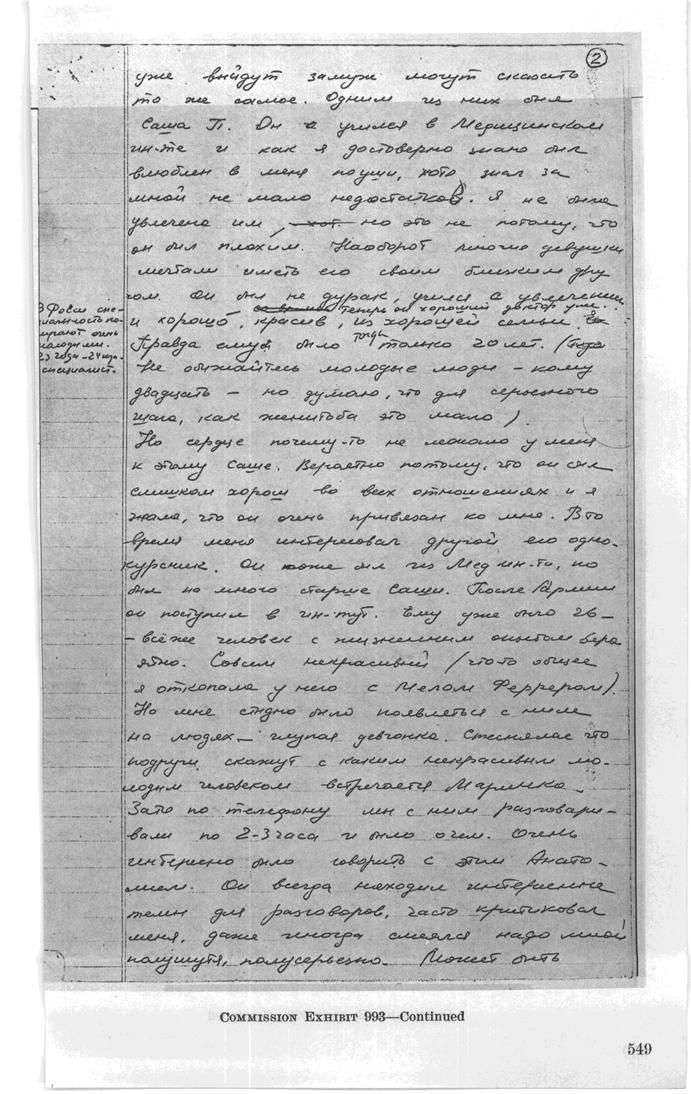 2
уже выйдут замуж могут сказать
то же самое. Одним из них был
Саша П. Он учился в Медицинском
ин-те и как я достоверно знаю был
влюблен в меня по уши, хотя знал за
мной не мало недостатков. Я не была
увлечена им, но это не потому, что
он был плохим. Наоборот многие девушки
мечтали иметь его своим близким дру
гом. Он был не дурак, учился с увлечением
теперь он хороший доктор уже.
и хорошо, красив, из хорошей семьи.
Правда ему было тогда только 20 лет. (
Не обижайтесь молодые люди – кому
двадцать – но думаю, что для серьезного
шага, как женитьба это мало)
В России спе-
циальность по-
лучают очень
молодыми.
23 года – 24 года –
специалист.
Но сердце почему-то не лежало у меня
к этому Саше. Вероятно потому, что он был
слишком хорош во всех отношениях и я
знала, что он очень привязан ко мне. В то
время меня интересовал другой, его одно-
курсник. Он тоже был из Мед ин-та, но
был на много старше Саши. После Армии
он поступил в ин-тут. Ему уже было 26 –
– всё же человек с жизненным опытом веро
ятно. Совсем некрасивый (что-то общее
я откопала у него с Мелом Феррером).
Но мне стыдно было появляться с ним
на людях – глупая девчонка. Стеснялась что
подруги скажут с каким некрасивым мо-
лодым человеком встречается Маринка.
Зато по телефону мы с ним разговари-
вали по 2-3 часа и было о чем. Очень
интересно было говорить с этим Анато-
лием. Он всегда находил интересные
темы для разговоров, часто критиковал
меня, даже иногда смеялся надо мной
полушутя, полусерьезно. Может быть
COMMISSION EXHIBIT 993—Continued
549